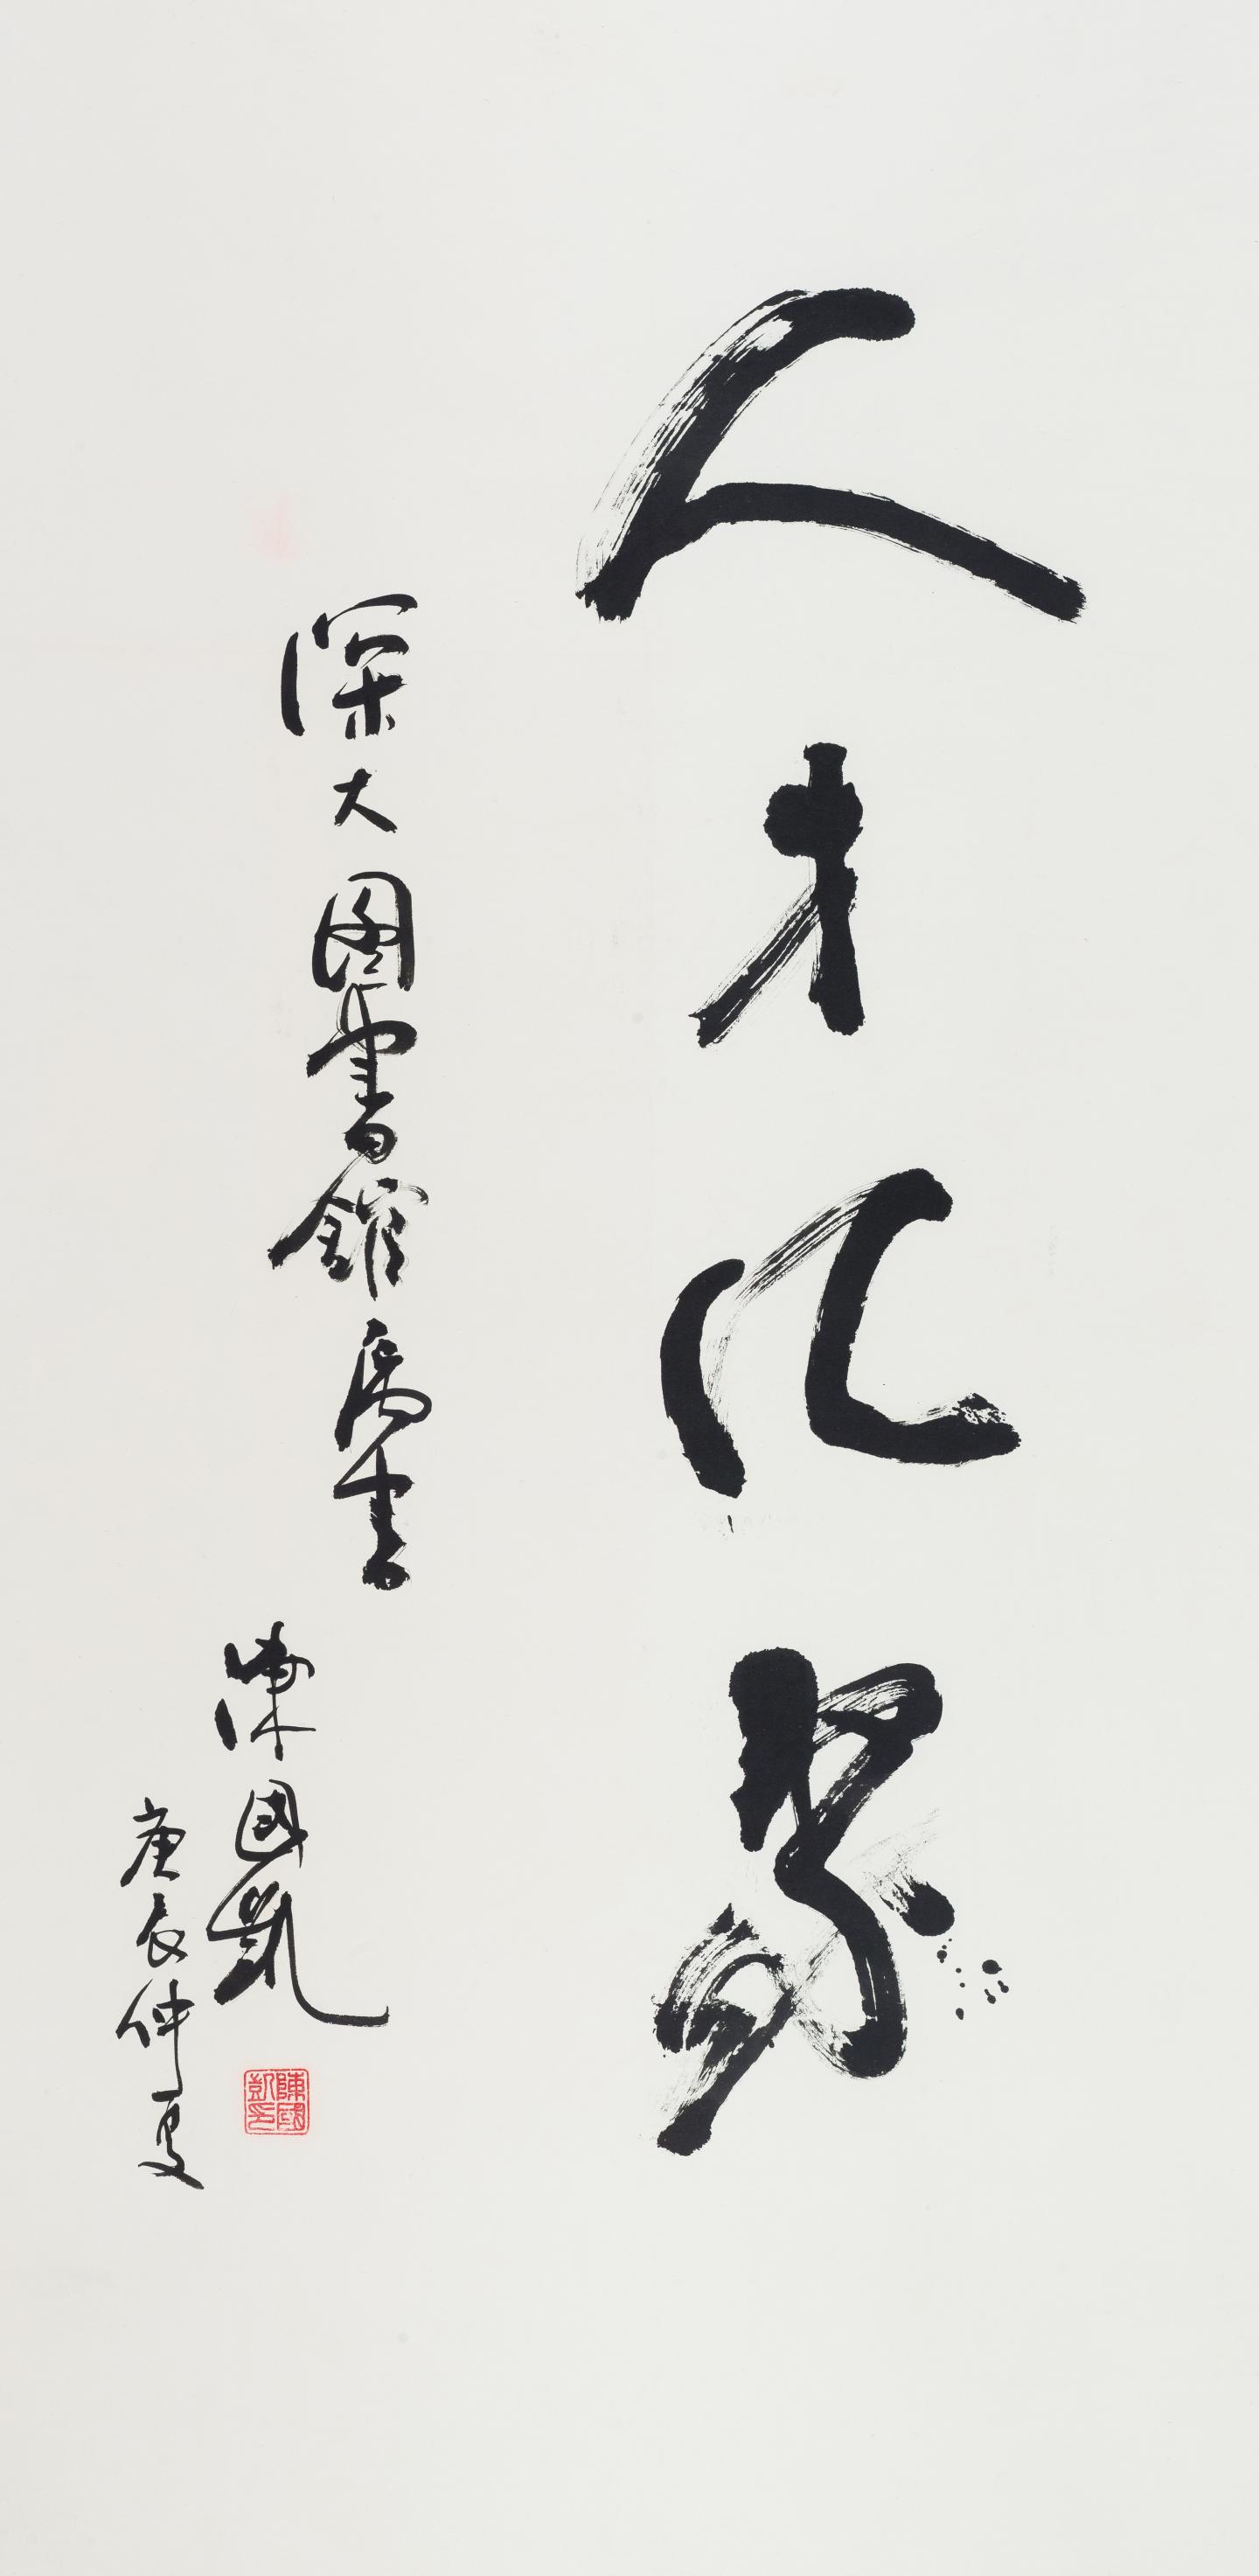 人才代聚
深大图書館屬書
陳國凱
庚辰仲夏
陳國凱印